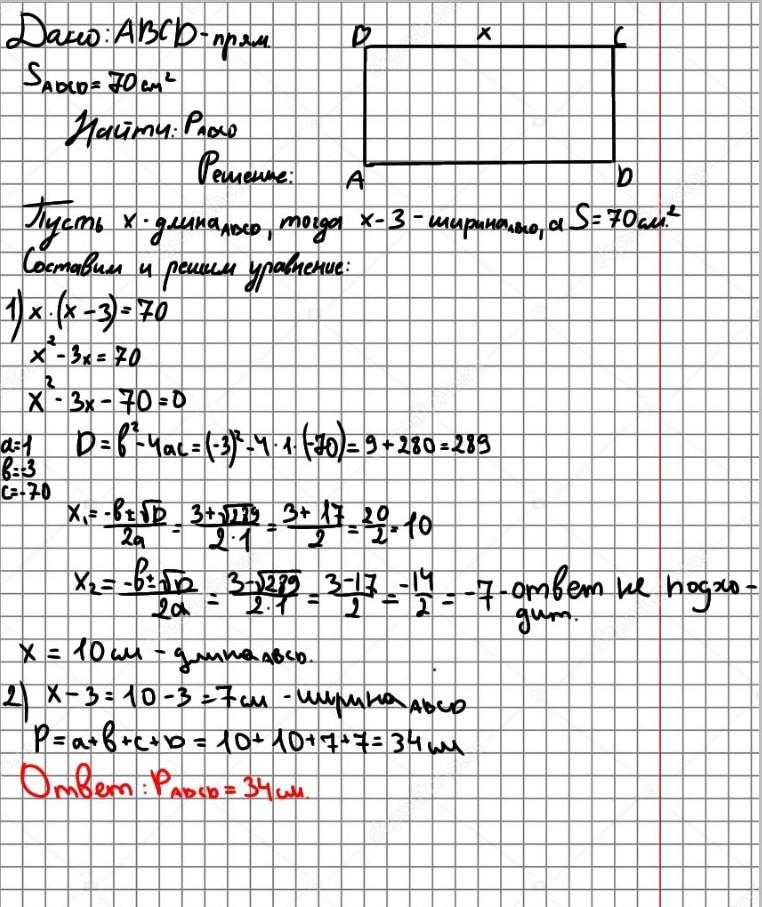 Дано: ABCD - прям.
D x C
S ABCD = 70 см²
Найти: P ABCD
Решение:
A D
Пусть x - длина ABCD, тогда x - 3 - ширина ABCD, а S = 70 см²
Составим и решим уравнение:
1) x · (x - 3) = 70
x² - 3x = 70
x² - 3x - 70 = 0
a=1
b=-3
c=-70
D = b² - 4ac = (-3)² - 4 · 1 · (-70) = 9 + 280 = 289
x₁ = (-b ± √D)/2a = (3 + √289)/(2 · 1) = (3 + 17)/2 = 20/2 = 10
x₂ = (-b ± √D)/2a = (3 - √289)/(2 · 1) = (3 - 17)/2 = -14/2 = -7 - ответ не подхо-
дит.
x = 10 см - длина ABCD.
2) x - 3 = 10 - 3 = 7 см - ширина ABCD
P = a + b + c + D = 10 + 10 + 7 + 7 = 34 см
Ответ: P ABCD = 34 см.